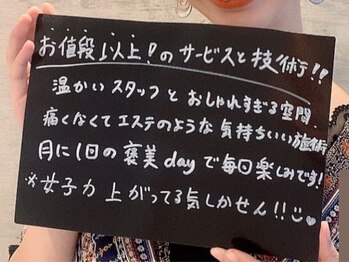 お値段以上!のサービスと技術!!
温かいスタッフとおしゃれすぎる空間
痛くなくてエステのような気持ちいい施術
月に1回の褒美dayで毎回楽しみです!
※女子力上がってる気しかせん!!